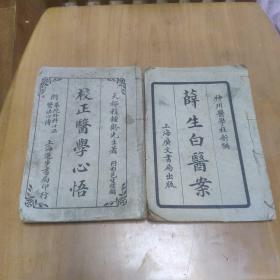 神州醫學社新編
薛生白醫案
上海廣文書局出版
天都程鍾齡先生著
校正醫學心悟
上海進步書局印行